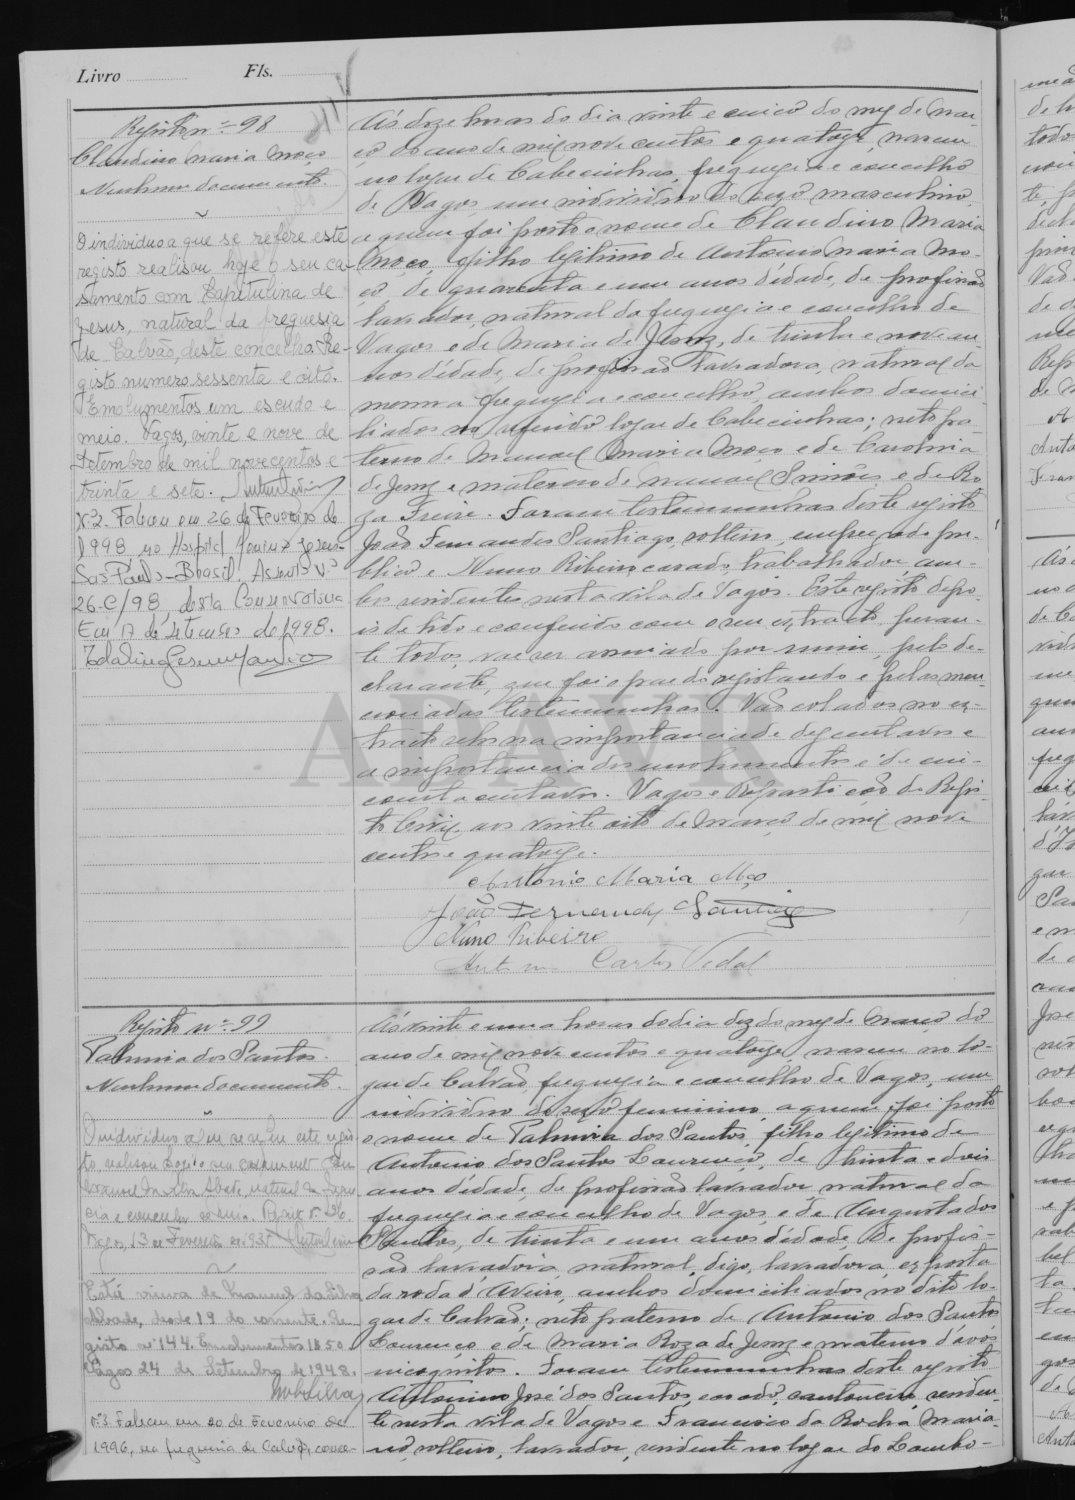 Livro Fls.
Registo nº 98
Claudino Maria Moço
Nenhum documento.
O individuo a que se refere este
registo realisou hoje o seu ca-
samento com Capitulina de
Jesus, natural da freguesia
de Calvão, deste concelho. Re-
gisto numero sessenta e oito.
Emolumentos um escudo e
meio. Vagos, vinte e nove de
Setembro de mil novecentos e
trinta e sete.
Nº2. Faleceu em 26 de Fevereiro de
1998 no Hospital
São Paulo - Brasil. Assento nº
26-C/98, desta Conservatória
Em 17 de Setembro de 1998.
Às doze horas do dia vinte e cinco do mez de Mar-
ço do ano de mil nove centos e quatorze, nasceu
no logar de Cabecinhas, freguezia e concelho
de Vagos, um individuo do sexo masculino,
a quem foi posto o nome de Claudino Maria
Moço, filho legitimo de Antonio Maria Mo-
ço, de quarenta e um anos d'idade, de profissão
lavrador, natural da freguezia e concelho de
Vagos e de Maria de Jesuz, de trinta e nove an-
nos d'idade, de profissão lavradora, natural da
mesma freguezia e concelho, ambos domici-
liados no referido logar de Cabecinhas; neto pa-
terno de Manoel Maria Moço e de Carolina
de Jesuz e materno de Manoel Simões e de Ro-
za Freire. Foram testemunhas deste registo
João Fernandes Santiago, solteiro, empregado pu-
blico e Nuno Ribeiro, casado, trabalhador, am-
bos residentes nesta vila de Vagos. Este registo depo-
is de lido e conferido com o seu extracto peran-
te todos, vae ser assinado por mim, pelo de-
clarante, que foi o pae do registando e pelas men-
cionadas testemunhas. Vão colados no ex-
tracto selos na importancia de dez centavos e
a importancia dos emolumentos é de cin-
coenta centavos. Vagos e Repartição do Regis-
to Civil, aos vinte oito de Março de mil nove
centos e quatorze.
Antonio Maria Moço
João Fernandes Santiago
Nuno Ribeiro
Carlos Vidal
Registo nº 99
Palmira dos Santos.
Nenhum documento.
O individuo a que se refere este regis-
to, realisou hoje o seu casamento com
Manoel da Silva Abade, natural da
e concelho
Vagos, 13 de Fevereiro de 1935
Está viuva de Manuel da Silva
Abade, desde 19 do corrente. Re-
gisto nº 144. Emolumentos 1$50
Vagos 24 de Setembro de 1948.
Nº3. Faleceu em 20 de Fevereiro de
1996, na freguesia de Calvão, conce-
Às vinte e uma horas do dia dez do mez de Março do
ano de mil nove centos e quatorze, nasceu no lo-
gar de Calvão, freguezia e concelho de Vagos, um
individuo do sexo feminino, a quem foi posto
o nome de Palmira dos Santos, filho legitimo de
Antonio dos Santos Lourenço, de trinta e dois
anos d'idade, de profissão lavrador, natural da
freguezia e concelho de Vagos, e de Augusta dos
Santos, de trinta e um anos d'idade, de profis-
são lavradora, natural, digo, lavradora, exposta
da roda d'Aveiro, ambos domiciliados no dito lo-
gar de Calvão; neto paterno de Antonio dos Santos
Lourenço e de Maria Roza de Jesuz e materno d'avós
incognitos. Foram testemunhas deste registo
Antonino José dos Santos, casado, cantoneiro, residen-
te nesta vila de Vagos e Francisco da Rocha Maria-
no, solteiro, lavrador, residente no logar do Lombo-